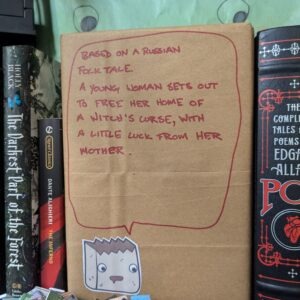 HOLLY BLACK
The Darkest Part of the Forest
DANTE ALIGHIERI THE INFERNO
BASED ON A RUSSIAN
FOLK TALE.
A YOUNG WOMAN SETS OUT
TO FREE HER HOME OF
A WITCH'S CURSE, WITH
A LITTLE LUCK FROM HER
MOTHER.
THE
COMPLETE
TALES
POEMS
EDGAR
ALLA
PO